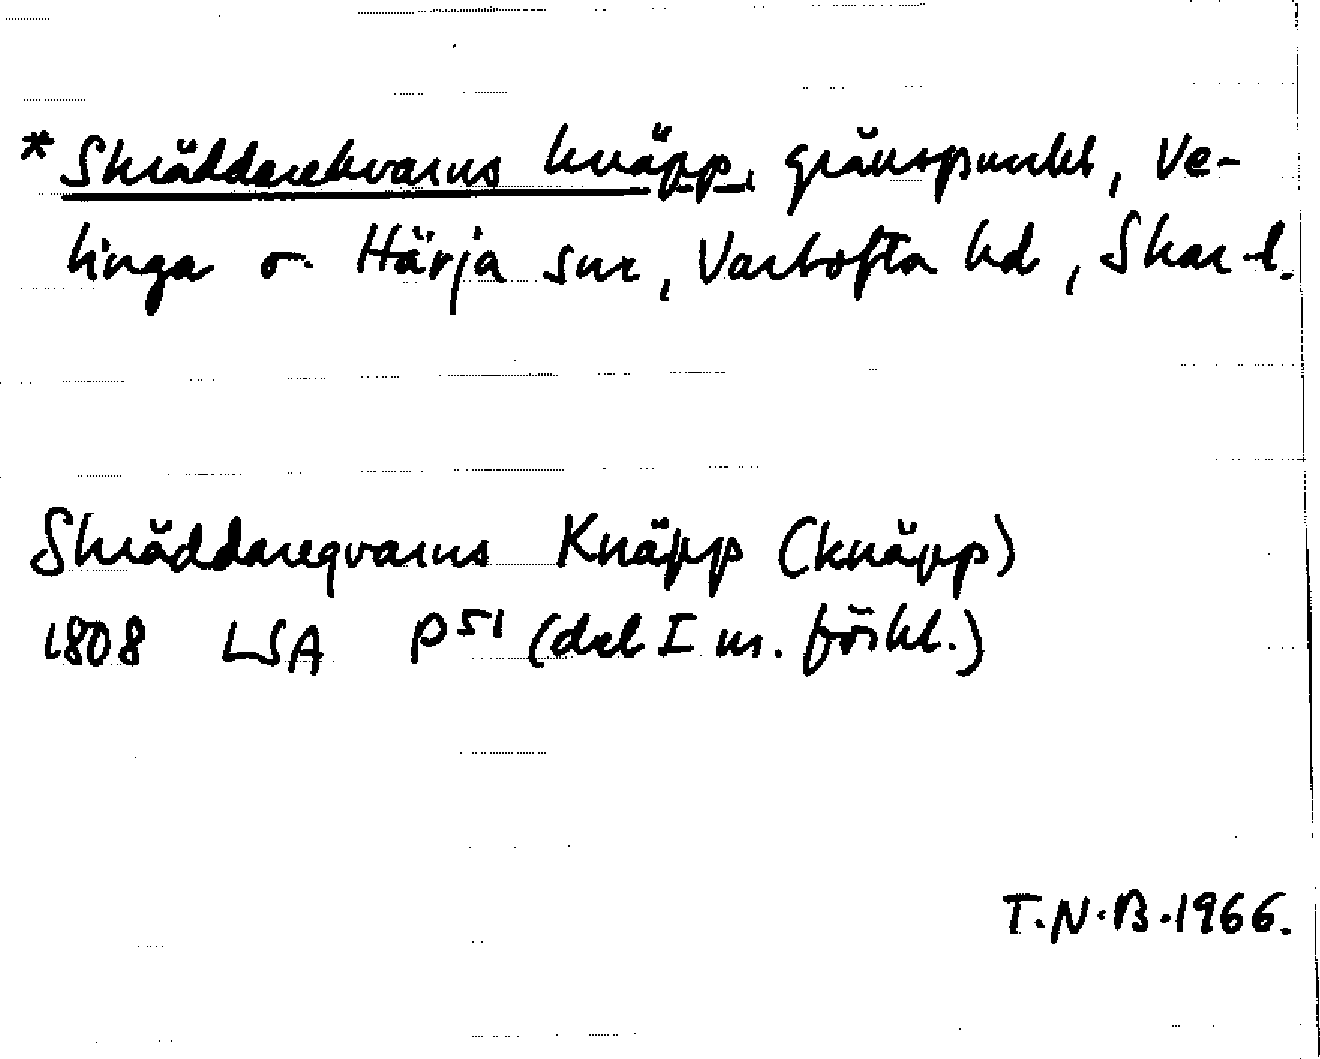 *Skräddarekvarns knäpp, gränspunkt, Ve-
linga o. Härja snr, Vartofta hd, Skar.l.
Skräddareqvarns Knäpp (knäpp)
1808 LSA P51 (del I m. förkl.)
T.N.B.1966.